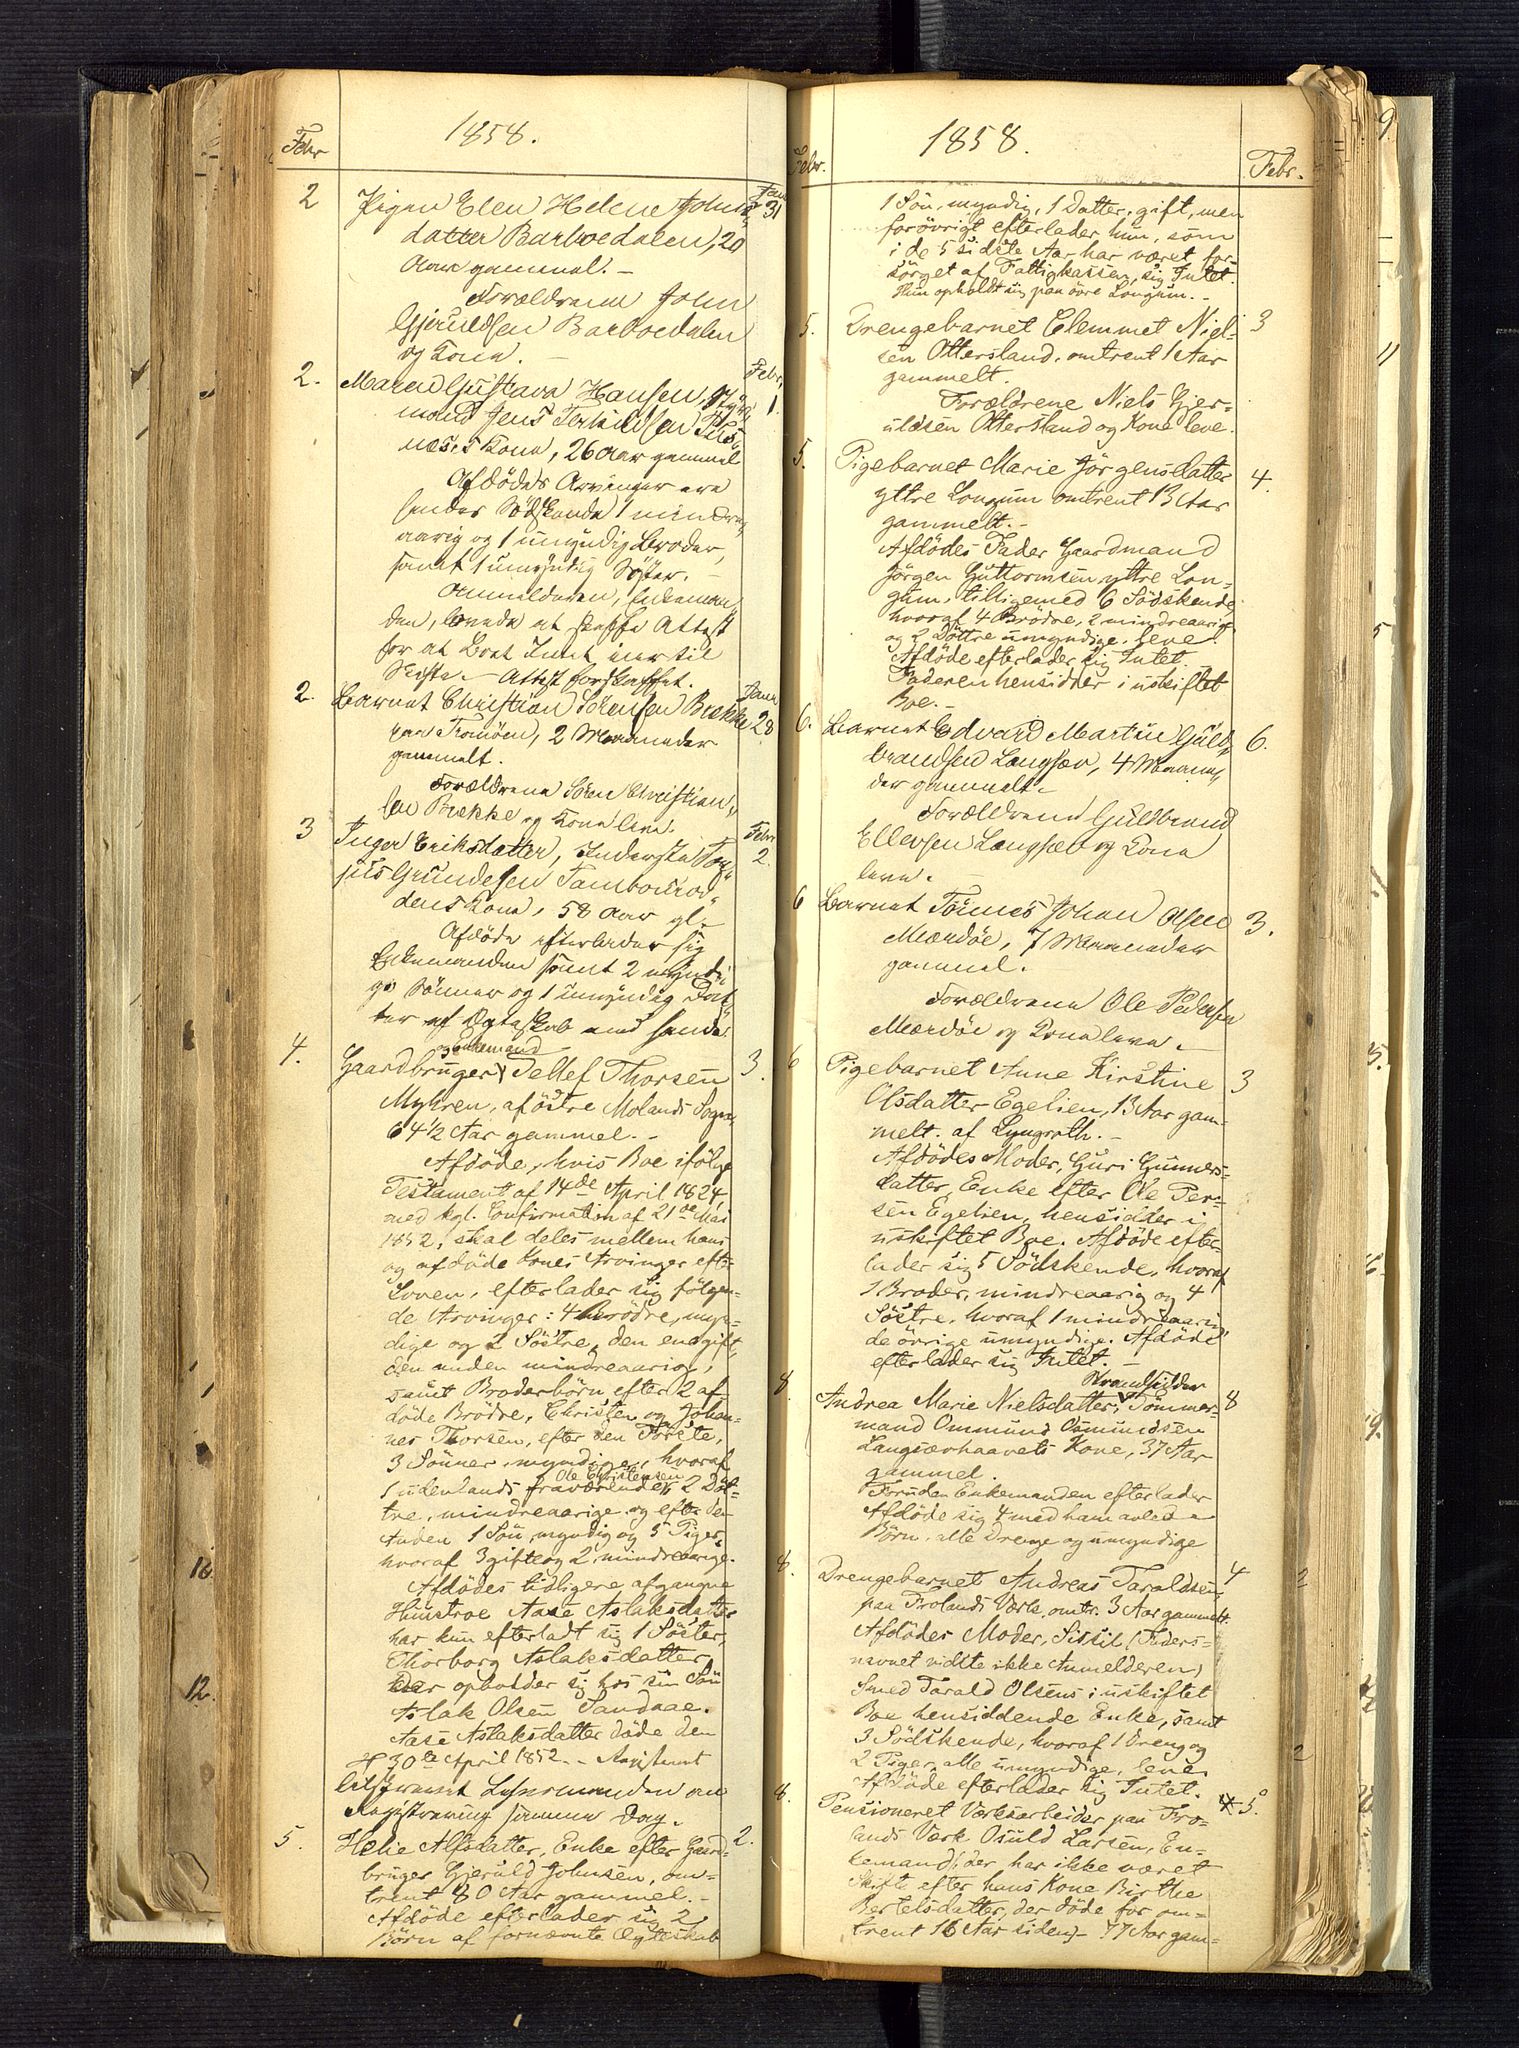 1858.
Febr
2 Pigen Elen Helene Johns Janr 31
datter Barboedalen, 20
Aar gammel. –
Forældrene John
Gjeruldsen Barboedalen
og Kone. –
2. Maren Gustava Hansen, Febr. 1.
mand Jens Terkildsen
næs's Kone, 26 Aar gammel
Afdødes Arvinger ere
hendes Sødskende 1 mindre
aarig og 1 umyndig Broder,
samt 1 umyndig Søster. –
Anmelderen, Enkeman
den, lovede at skaffe Attest
for at Boet Intet eier til
Skifte. – Attest forskaffet.
2. Barnet Christian Sörensen Brekke Janr 28
paa Tromöen, 2 Maaneder
gammelt.
Forældrene Sören Christian
sen Brekke og Kone leve.
3 Inger Eriksdatter, Inderste Tor Febr 2.
jus Gundesen Tambourod
dens Kone, 58 Aar gl.
Afdöde efterlader sig
Enkemanden samt 2 myndi
ge Sönner og 1 umyndig Dat
ter af Ægteskab med hende.
og Enkemand
4. Gaardbruger Tellef Thorsen 3.
Myhren, af östre Molands Sogn,
64 1/2 Aar gammel. –
Afdöde, hvis Boe ifölge
Testament af 14de April 1824,
med kgl. Confirmation af 21de Mai
1852, skal deles mellem hans
og afdöde Kones Arvinger efter
Loven, efterlader sig fölgen
de Arvinger: 4 Brödre, myn
dige og 2 Söstre, den ene gift,
den anden mindreaarig,
samt Broderbörn efter 2 af
döde Brödre, Christen og Johan
nes Thorsen, efter den Förste,
3 Sönner, myndige, hvoraf
Ole Christensen
1 udenlands fraværende, 2 Döt
tre, mindreaarige og efter den
Anden 1 Sön, myndig og 5 Piger,
hvoraf 3 gifte og 2 mindreaarige.
Afdödes tidligere afgangne
Hustroe Aase Aslaksdatter
har kun efterladt sig 1 Söster,
Thorborg Aslaksdatter,
der opholder sig hos sin Sön
Aslak Olsen Sandaae.
Aase Aslaksdatter döde den
30te April 1852. – Registreret
tilskrevet Lensmanden om
Registrering samme Dag.
5. Helje Alfsdatter, Enke efter Gaard 2.
bruger Gjeruld Johnsen, om
trent 80 Aar gammel. –
Afdöde efterlader sig 2
Börn af fornævnte Ægteskab
1858.
Febr. Febr.
1 Sön, myndig, 1 Datter, gift, men
forövrigt efterlader hun, som
i de 5 sidste Aar har været for
sörget af Fattigkassen, sig Intet.
Hun opholdt sig paa övre Longum. –
5. Drengebarnet Clemmet Niel 3
sen Ottersland, omtrent 1 Aar
gammelt.
Forældrene Niels Gjer
uldsen Ottersland og Kone leve.
5. Pigebarnet Marie Jörgensdatter 4.
yttre Longum omtrent 13 Aar
gammelt. –
Afdödes Fader Gaardmand
Jörgen Guttormsen yttre Lon
gum, tilligemed 6 Södskende
hvoraf 4 Brödre, 2 mindreaarige
og 2 Döttre umyndige, leve.
Afdöde efterlader sig Intet.
Faderen hensidder i uskiftet
Boe. –
6. Barnet Edvard Martin Guld 6.
brandsen Langsæv, 4 Maane
der gammelt. –
Forældrene Guldbrand
Ellefsen Langsæv og Kone
leve. –
6 Barnet Tönnes Johan Olsen 3.
Mærdöe, 7 Maaneder
gammel.
Forældrene Ole Pedersen
Mærdöe og Kone leve. –
6 Pigebarnet Anne Kirstine 3
Olsdatter Egelien, 13 Aar gam
melt. af Lyngroth. –
Afdödes Moder, Guri Gunners
datter, Enke efter Ole Per
sen Egelien, hensidder i
uskiftet Boe. Afdöde efter
lader sig 5 Södskende, hvoraf
1 Broder, mindreaarig og 4
Söstre, hvoraf 1 mindreaarig
de övrige umyndige. Afdöde
efterlader sig Intet. –
Strandsidder
8. Andrea Marie Nielsdatter, Tömmer 8
mand Ommund Osmundsen
Langsævhaavets Kone, 37 Aar
gammel.
Foruden Enkemanden efterlader
Afdöde sig 4 med ham avlede
Börn, alle Drenge og umyndige
8. Drengebarnet Andreas Taraldsen 4
paa Frolands Værk, omtr. 3 Aar gammelt.
Afdödes Moder, Sissil (Faders
navnet vidste ikke Anmelderen)
Smed Tarald Olsens i uskiftet
Boe hensiddende Enke, samt
3 Södskende, hvoraf 1 Dreng og
2 Piger, alle umyndige, leve.
Afdöde efterlader sig Intet.
8. Pensioneret Værksarbeider paa Fro 5.
lands Værk Osuld Larsen, En
kemand, (der har ikke været
Skifte efter hans Kone Birthe
Bertelsdatter, der döde for om
trent 16 Aar siden) – 77 Aar gam
10.
12.